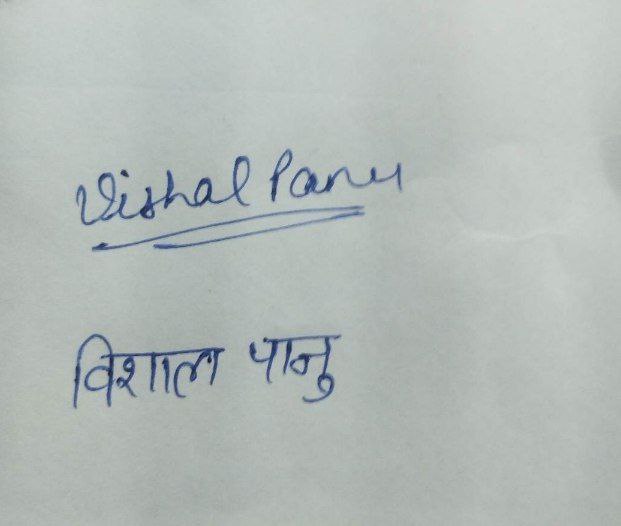 Vishal Panu
विशाल पानु